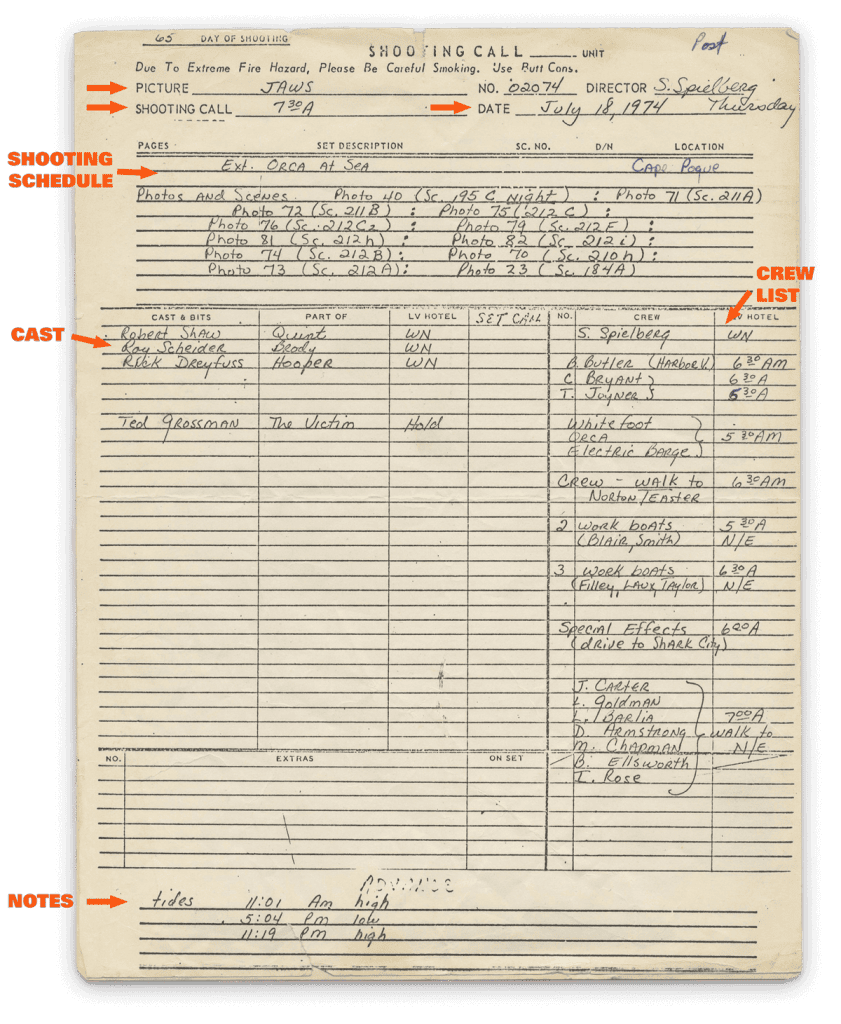 65 DAY OF SHOOTING
SHOOTING CALL UNIT
Post
Due To Extreme Fire Hazard, Please Be Careful Smoking. Use Butt Cans.
PICTURE JAWS NO. 02074 DIRECTOR S. Spielberg
SHOOTING CALL 7 30 A DATE July 18, 1974 Thursday
PAGES SET DESCRIPTION SC. NO. D/N LOCATION
SHOOTING SCHEDULE
Ext. ORCA At SEA Cape Pogue
Photos AND Scenes Photo 40 (Sc. 195 C Night) : Photo 71 (Sc. 211A)
Photo 72 (Sc. 211B) : Photo 75 (212 C) :
Photo 76 (Sc. 212C2) : Photo 79 (Sc. 212E) :
Photo 81 (Sc. 212h) : Photo 82 (Sc. 212i) :
Photo 74 (Sc. 212B) : Photo 70 (Sc. 210h) :
Photo 73 (Sc. 212A) : Photo 23 (Sc 184A)
CREW LIST
CAST & BITS PART OF LV HOTEL SET CALL NO. CREW LV HOTEL
CAST
Robert Shaw Quint WN S. Spielberg WN
Roy Scheider Brody WN
Rick Dreyfuss Hooper WN B. Butler (Harbor V.) 6 30 AM
C. BRYANT 6 30 A
T. JOYNER 5 30 A
Ted GROSSMAN The Victim Hold Whitefoot
ORCA 5 30 AM
Electric Barge
Crew - WALK to 6 30 AM
NORTON/EASTER
2 work boats 5 30 A
(BLAIR, Smith) N/E
3 work boats 6 30 A
(Filley, LAUX, TAYLOR) N/E
Special Effects 6 00 A
(dRive to ShARK City)
J. CARTER
L. Goldman
L. BARLIA 7 00 A
D. ARMSTRONG WALK to
M. CHAPMAN N/E
NO. EXTRAS ON SET B. Ellsworth
I. Rose
ADVANCE
NOTES
tides 11:01 Am high
5:04 Pm low
11:19 Pm high